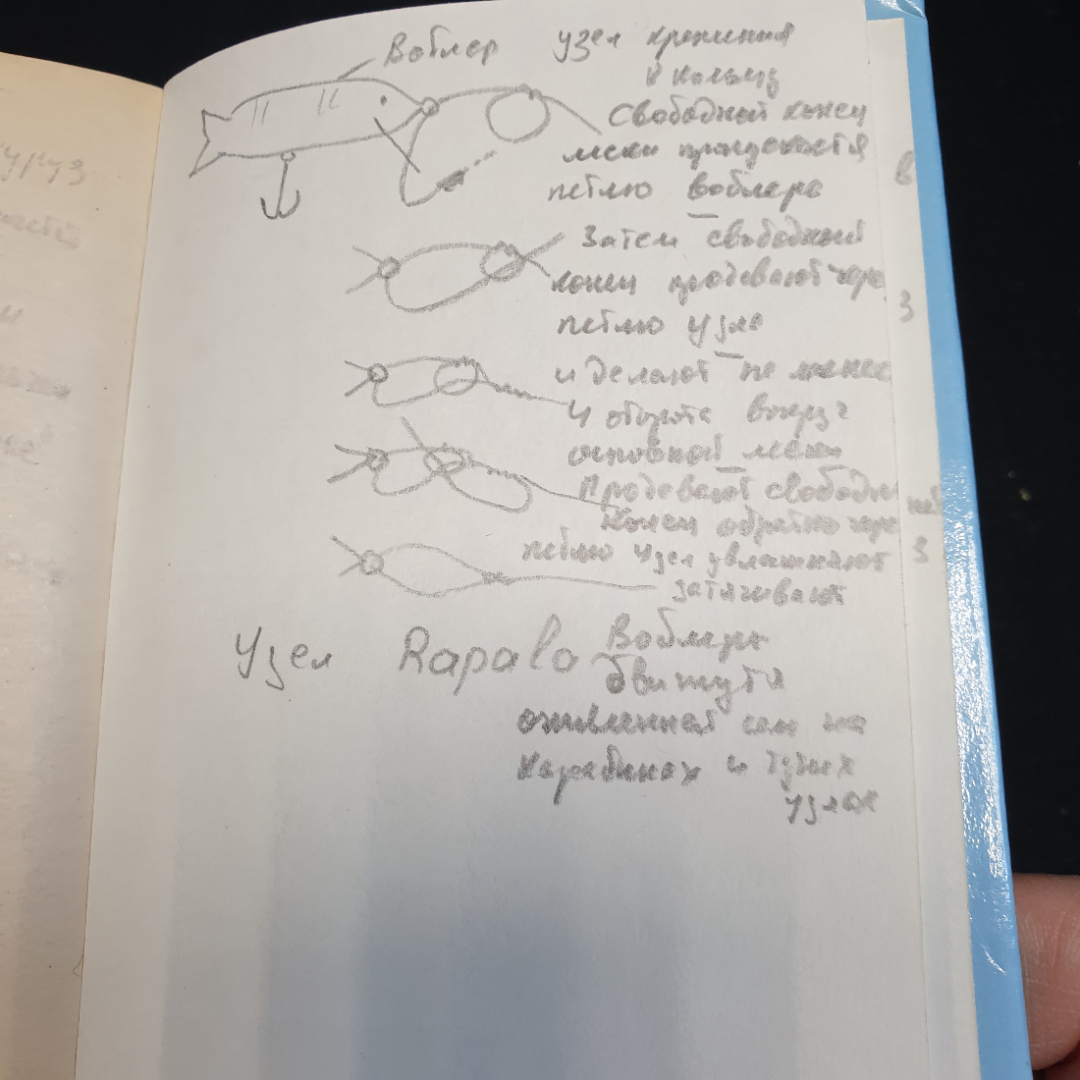 Воблер узел крепления
к кольцу
Свободный конец
лески продевается в
петлю воблера
Затем свободный
конец продевают через
петлю узла
и делают не менее
4 оборота вокруг
основной лески
Продевают свободный
конец обратно через
петлю узел увлажняют
затягивают
Узел Rapala Воблеры
на
карабинах и
узлах